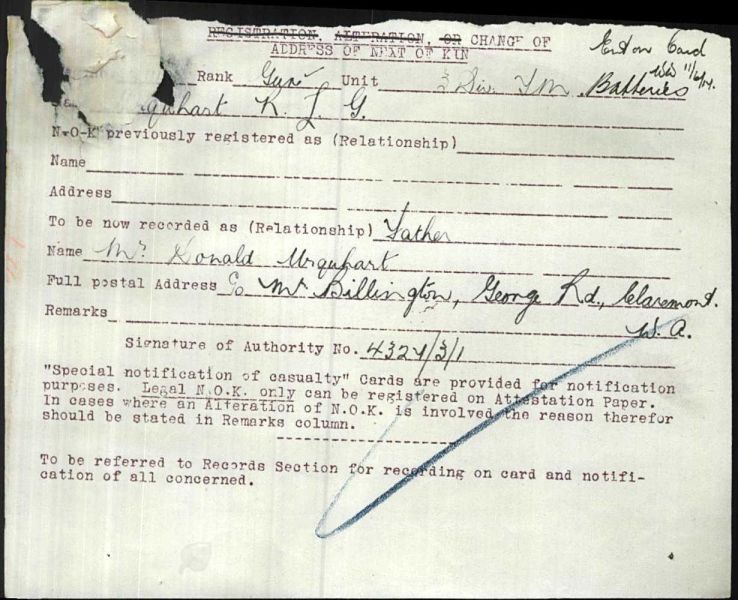 REGISTRATION, ALTERATION, OR CHANGE OF
ADDRESS OF NEXT OF KIN
Ent on Card
WW 11/6/17.
Rank Gunr Unit 3 Div. T.M. Batteries
Urquhart K. L. G.
N.O.K. previously registered as (Relationship)
Name
Address
To be now recorded as (Relationship) Father
Name Mr. Donald Urquhart
Full postal Address C/o Mr Billington, George Rd., Claremont.
W.A.
Remarks
Signature of Authority No. 4327/3/1
"Special notification of casualty" Cards are provided for notification
purposes. Legal N.O.K. only can be registered on Attestation Paper.
In cases where an Alteration of N.O.K. is involved the reason therefor
should be stated in Remarks column.
To be referred to Records Section for recording on card and notifi-
cation of all concerned.